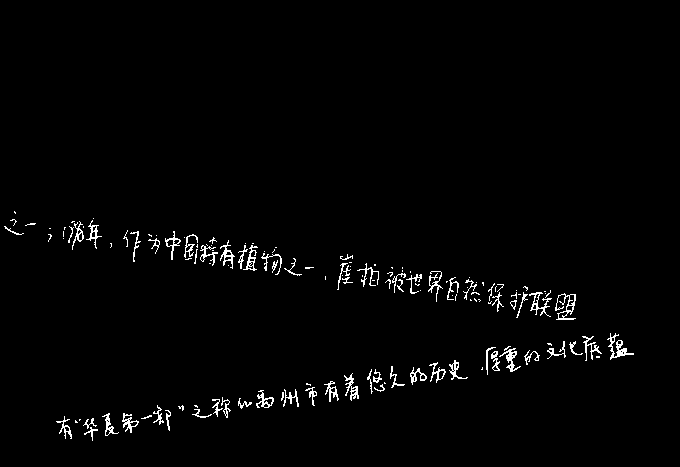 之一；1998年，作为中国特有植物之一，崖柏被世界自然保护联盟
有“华夏第一都”之称的禹州市有着悠久的历史，厚重的文化底蕴